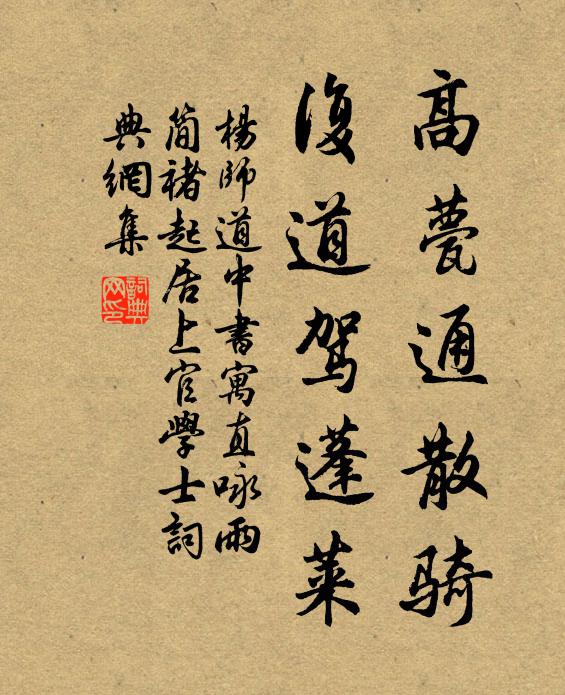 高甍通散骑
復道驾蓬莱
楊師道中書寓直咏雨
简褚起居上官學士詞
典網集
詞典网印